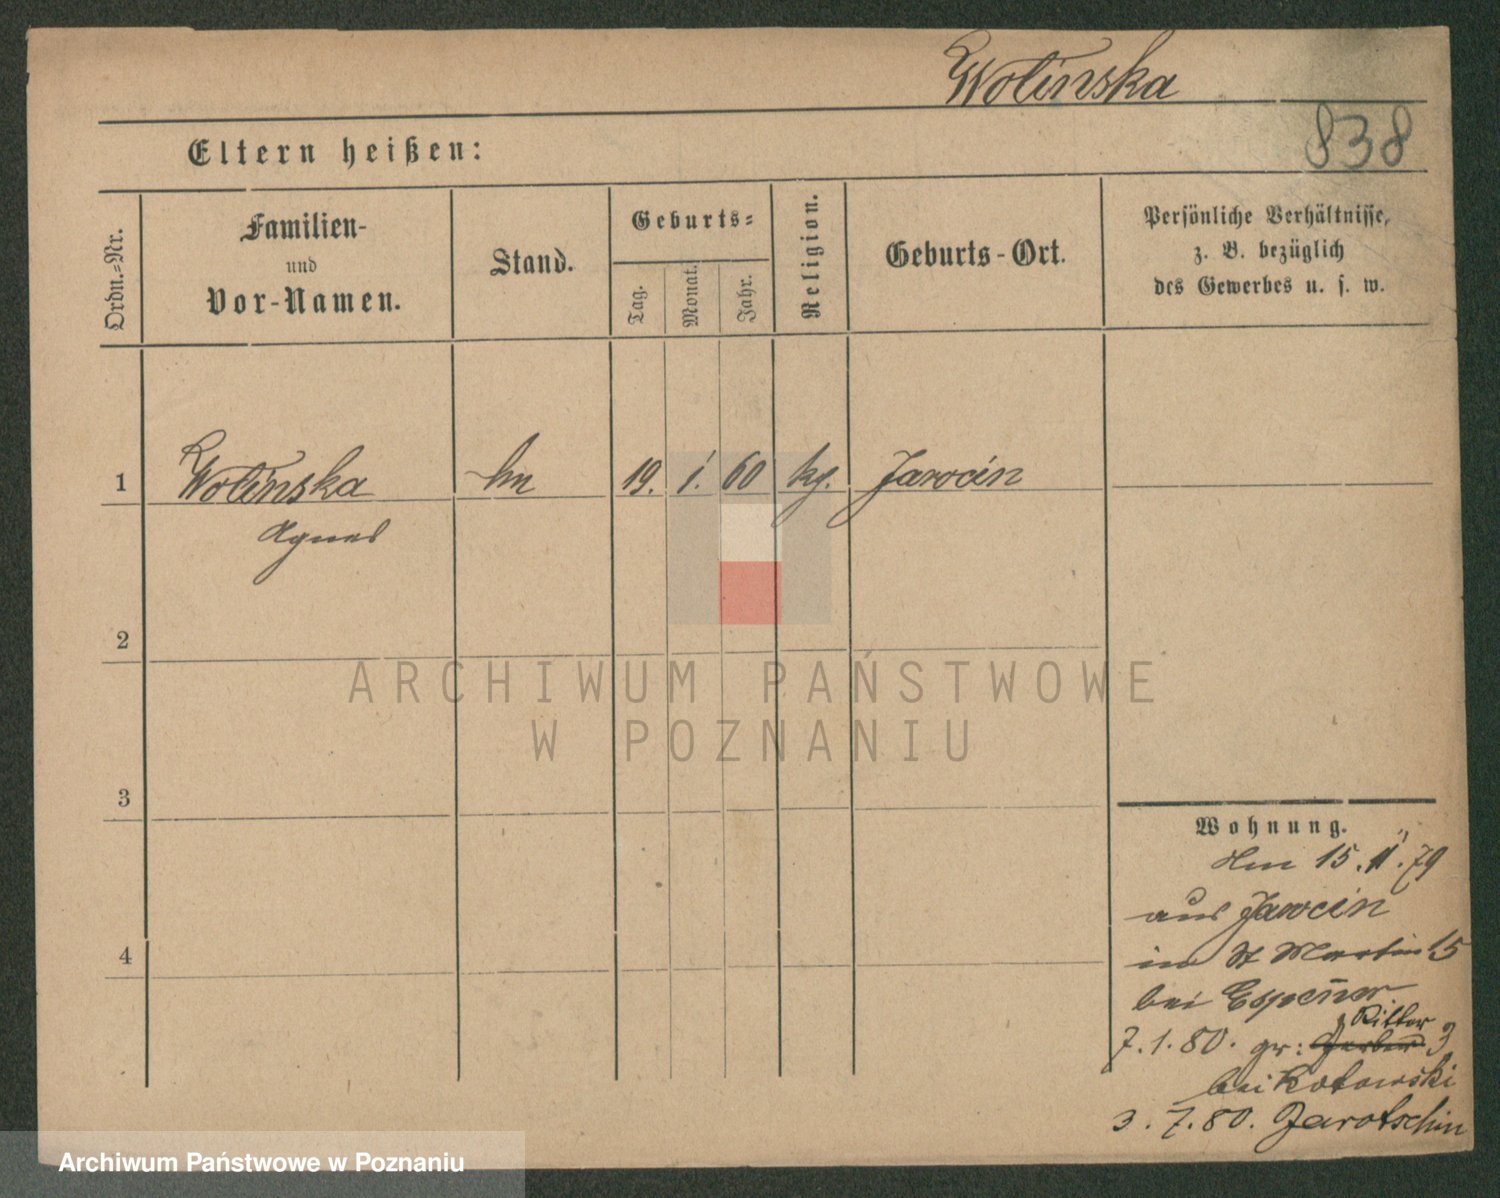 Wolinska
838
Eltern heißen:
Ordn.=Nr.
Familien-
und
Vor-Namen.
Stand.
Geburts=
Tag.
Monat.
Jahr.
Religion.
Geburts-Ort.
Persönliche Verhältnisse,
z. B. bezüglich
des Gewerbes u. s. w.
1 Wolinska 19. 1. 60 Jarocin
Agnes
2
3
4
ARCHIWUM PAŃSTWOWE
W POZNANIU
Wohnung.
15. 11. 79
aus Jarocin
in St Martin 15
bei
Ritter
7.1.80. gr: Gerber 3
bei Kotowski
3. 7. 80. Jarotschin
Archiwum Państwowe w Poznaniu